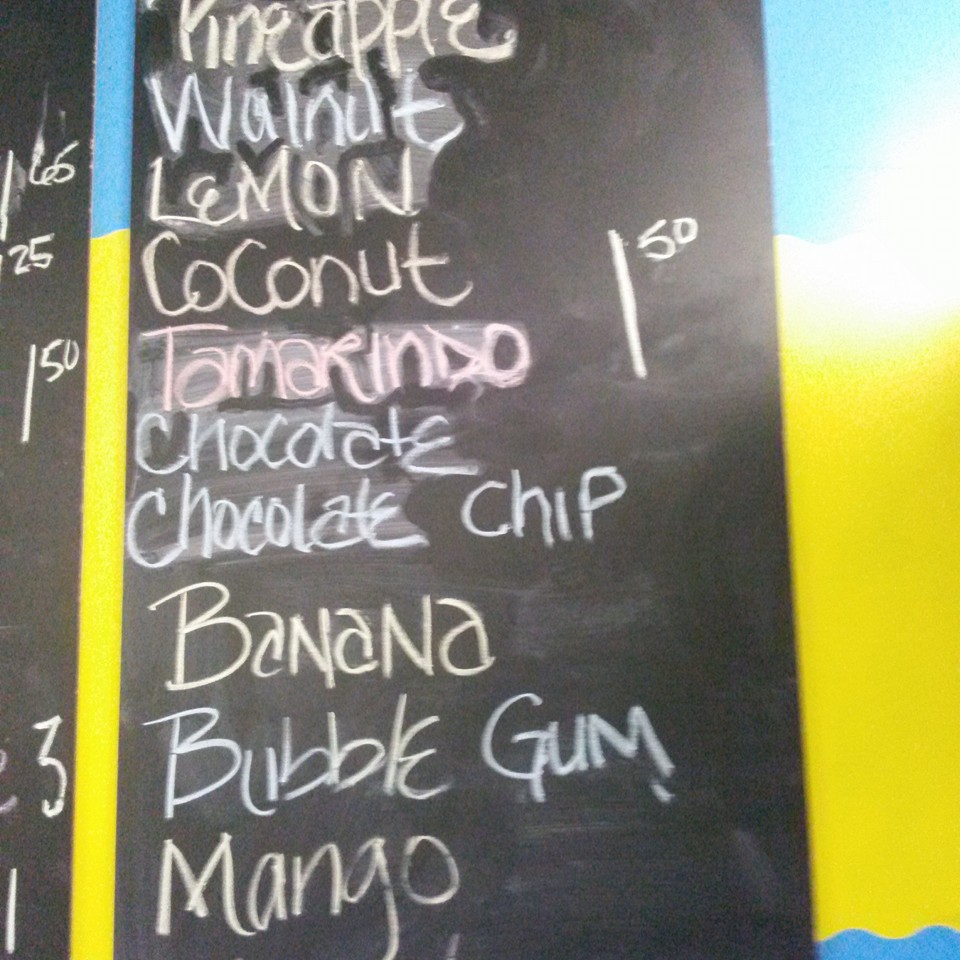 Pineapple
Walnut
LEMON
Coconut
TAMARINDO
Chocolate
Chocolate Chip
BANANA
Bubble Gum
Mango
1 50
65
25
1 50
3
1